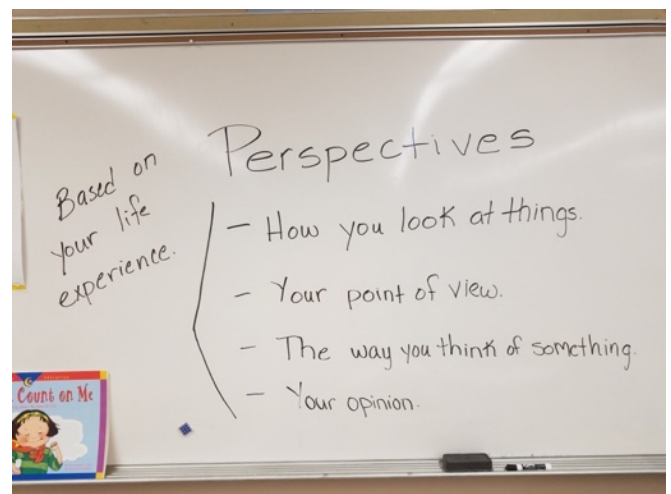 Perspectives
Based on
your life
experience.
- How you look at things.
- Your point of view.
- The way you think of something.
- Your opinion.
Count on Me